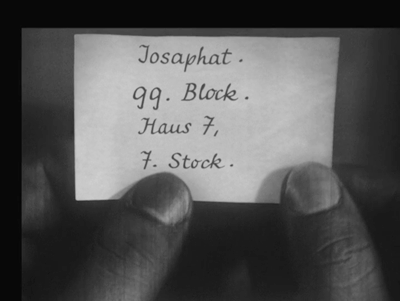 Josaphat.
99. Block.
Haus 7,
7. Stock.